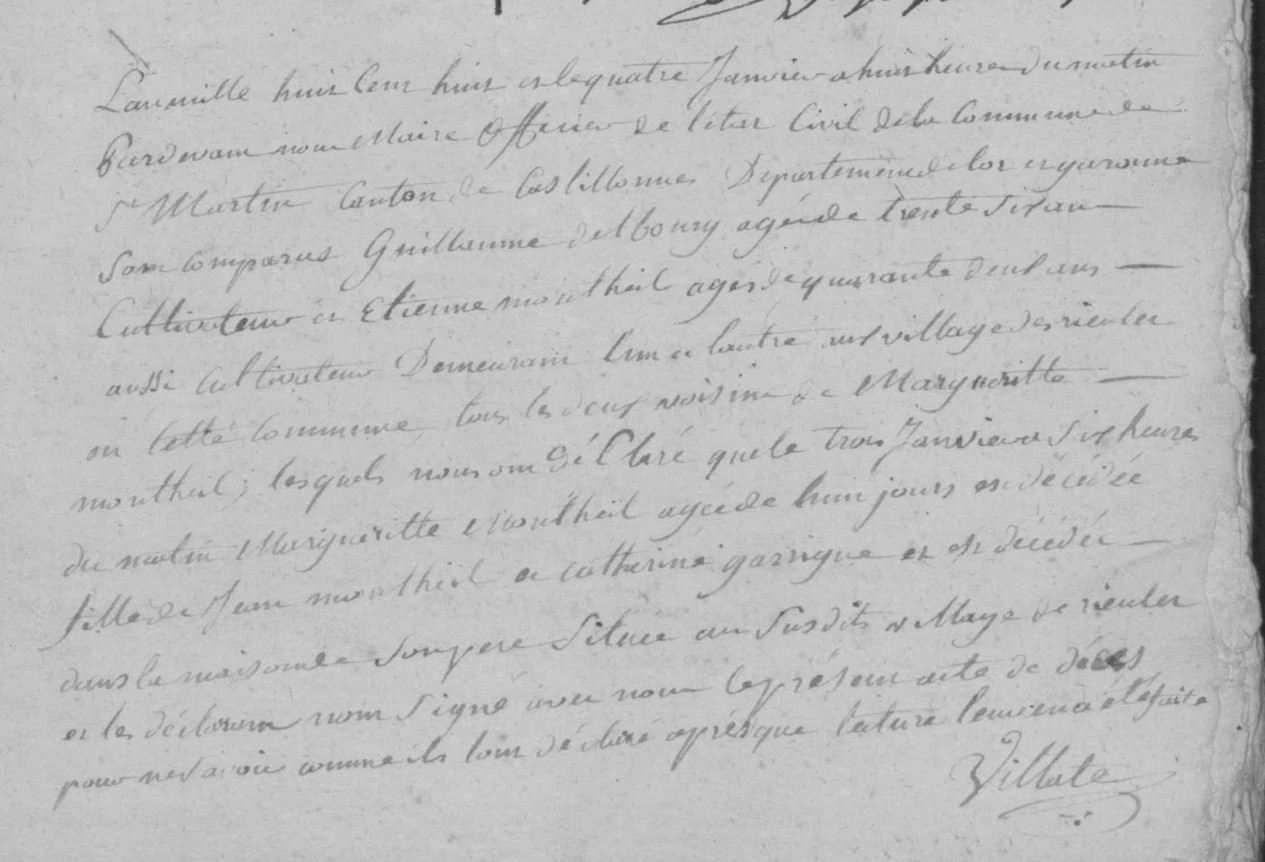 L'an mille huit Cent huit et le quatre Janvier a huit heures du matin
Pardevant nous Maire Officier de l'état Civil de la Commune de
St Martin Canton de Castillonnes Departement de lot et garonne
Sont comparus Guillaume delbourg agé de trente six ans —
Cultivateur et Etienne montheil agés de quarante deux ans —
aussi Cultivateur Demeurant l'un et l'autre aux village de rieuler
en Cette Commune tous les deux voisins de Margueritte —
montheil; lesquels nous ont déClaré que le trois Janvier a six heures
du matin Margueritte Montheil agée de huit jours est décédée
fille de Jean montheil et catherine garrigue et est décédée —
dans la maison de son pere Située au Susdits village de rieuler
et les déclarant n'ont Signé avec nous le présent acte de décès
pour ne savoir comme ils l'ont déclaré après que lecture leur en a été faite
Villate